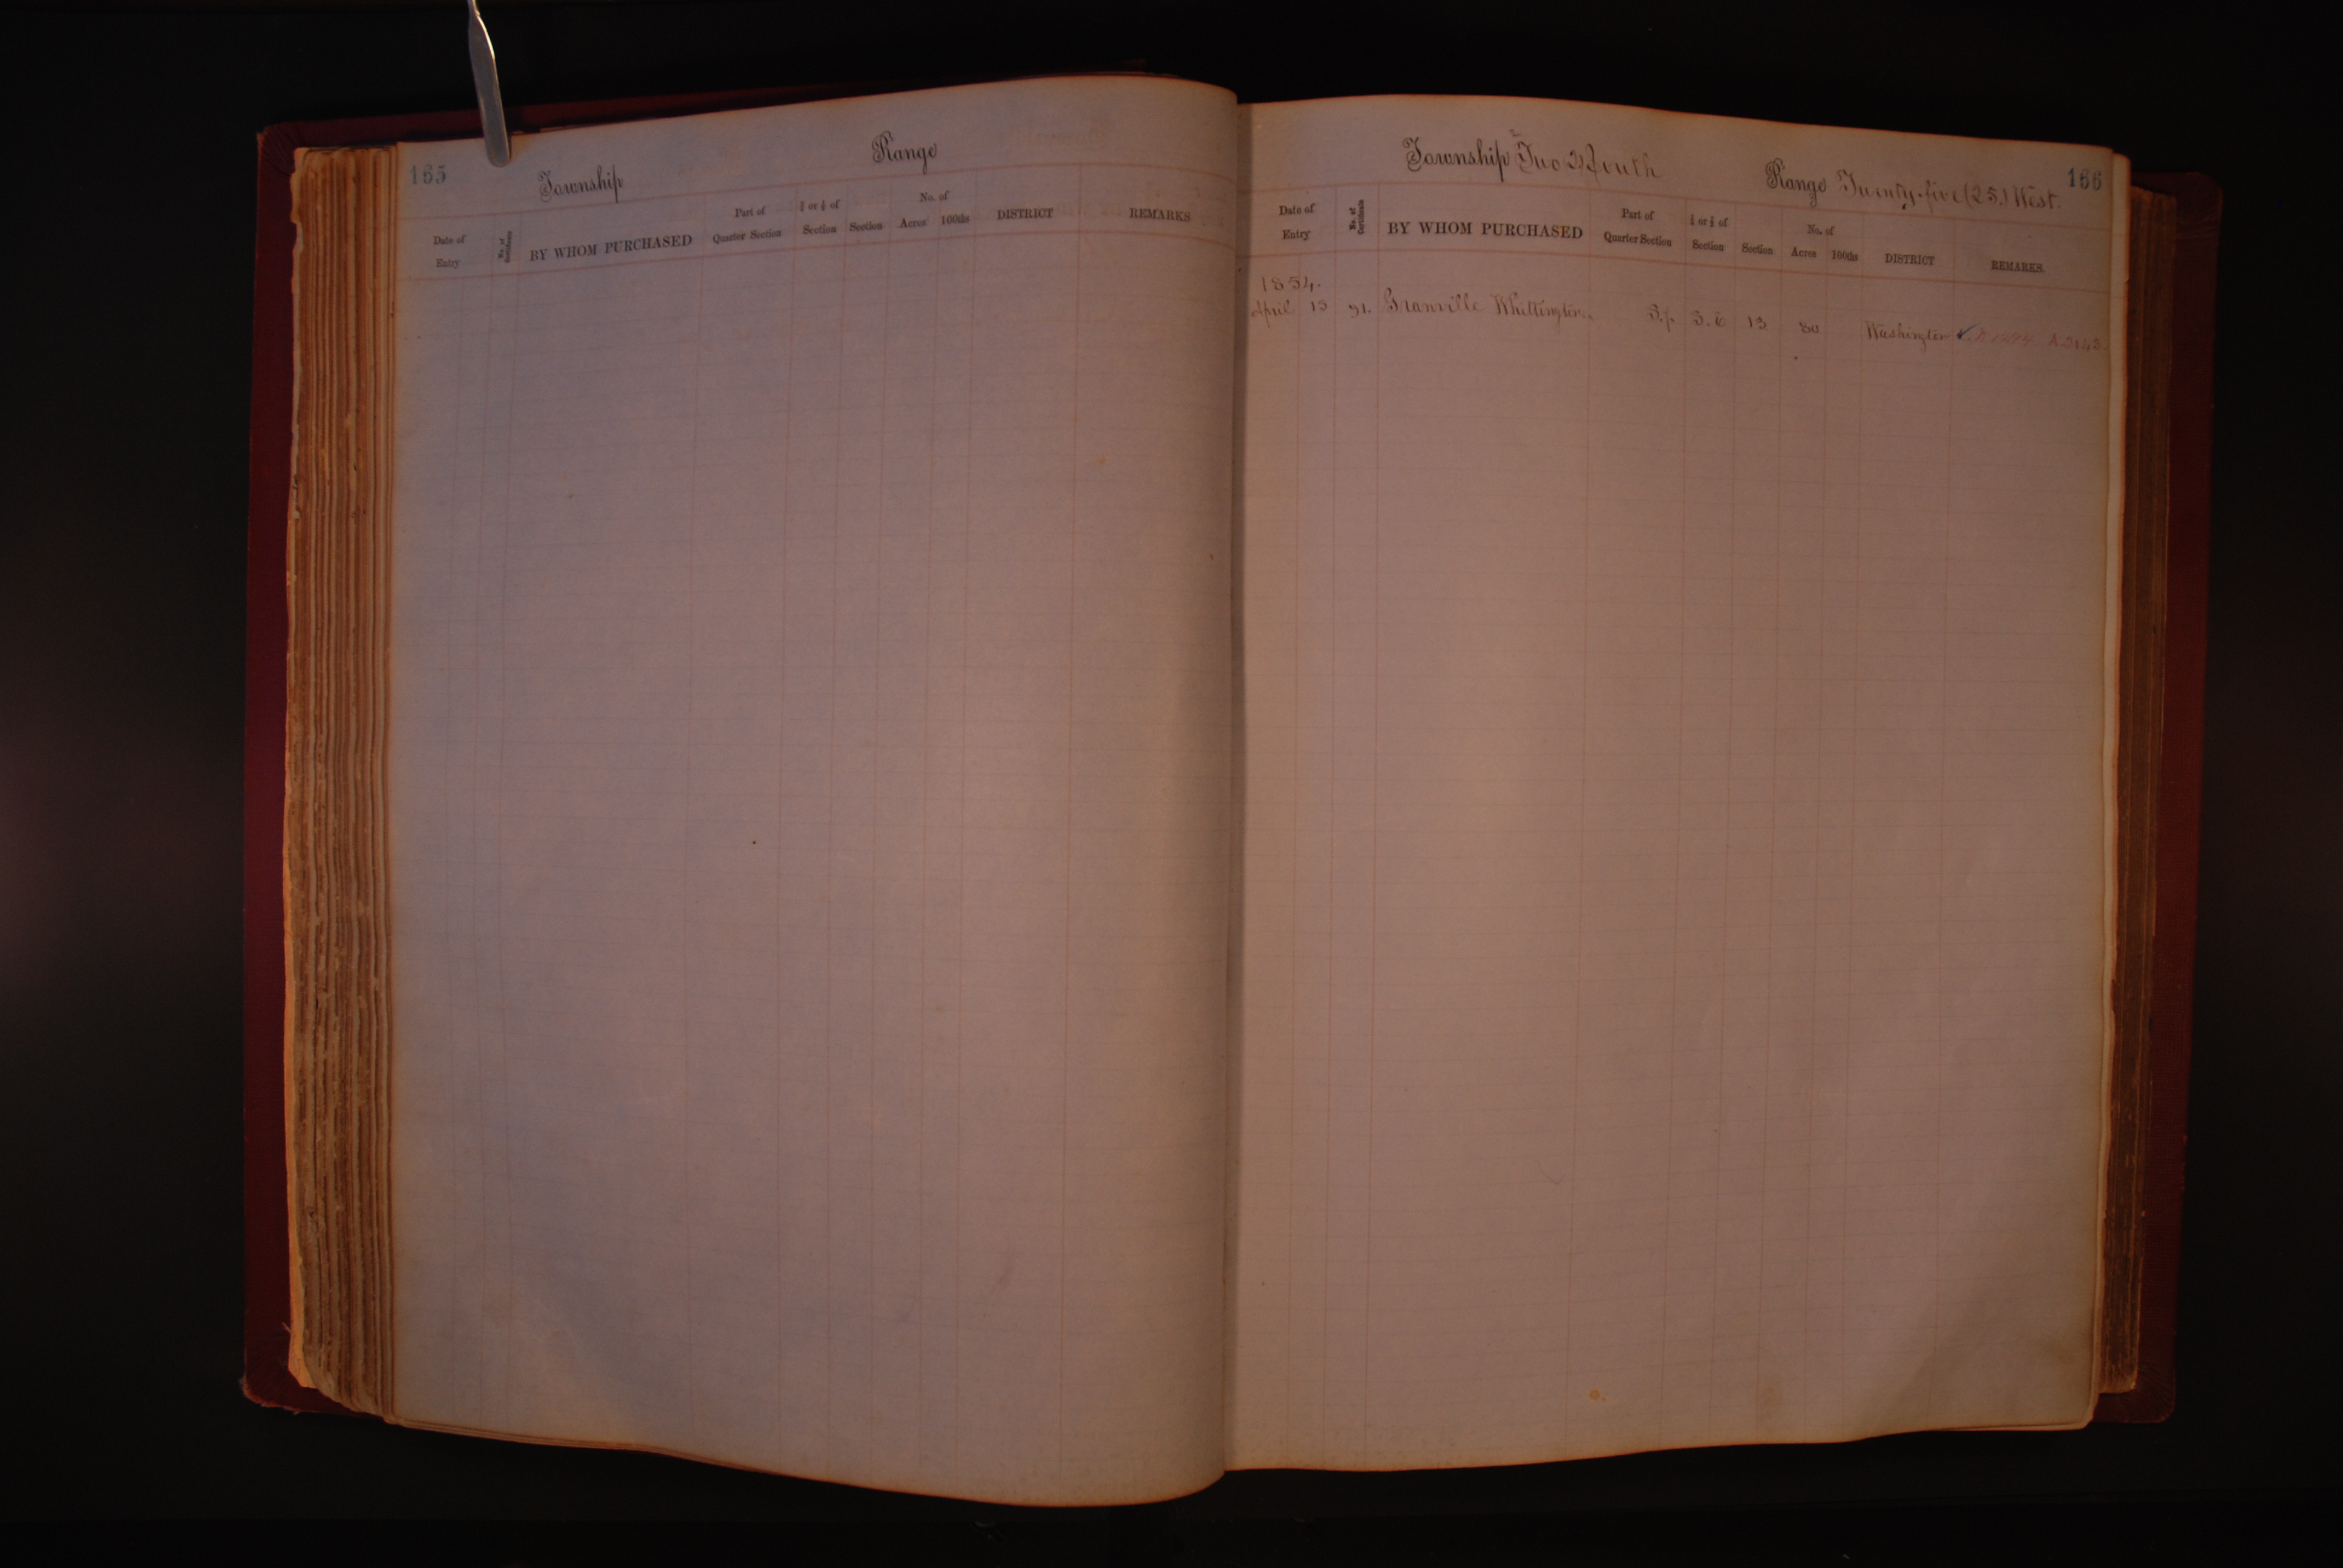 165
Township
Range
Date of Entry
No. of Certificate
BY WHOM PURCHASED
Part of Quarter Section
¼ or ½ of Section
Section
No. of
Acres
100ths
DISTRICT
REMARKS
Township Two 2) South
Range Twenty-five (25) West.
166
Date of Entry
No. of Certificate
BY WHOM PURCHASED
Part of Quarter Section
¼ or ½ of Section
Section
No. of
Acres
100ths
DISTRICT
REMARKS.
1854.
April 13 91. Granville Whittington. S. E 13 80 Washington